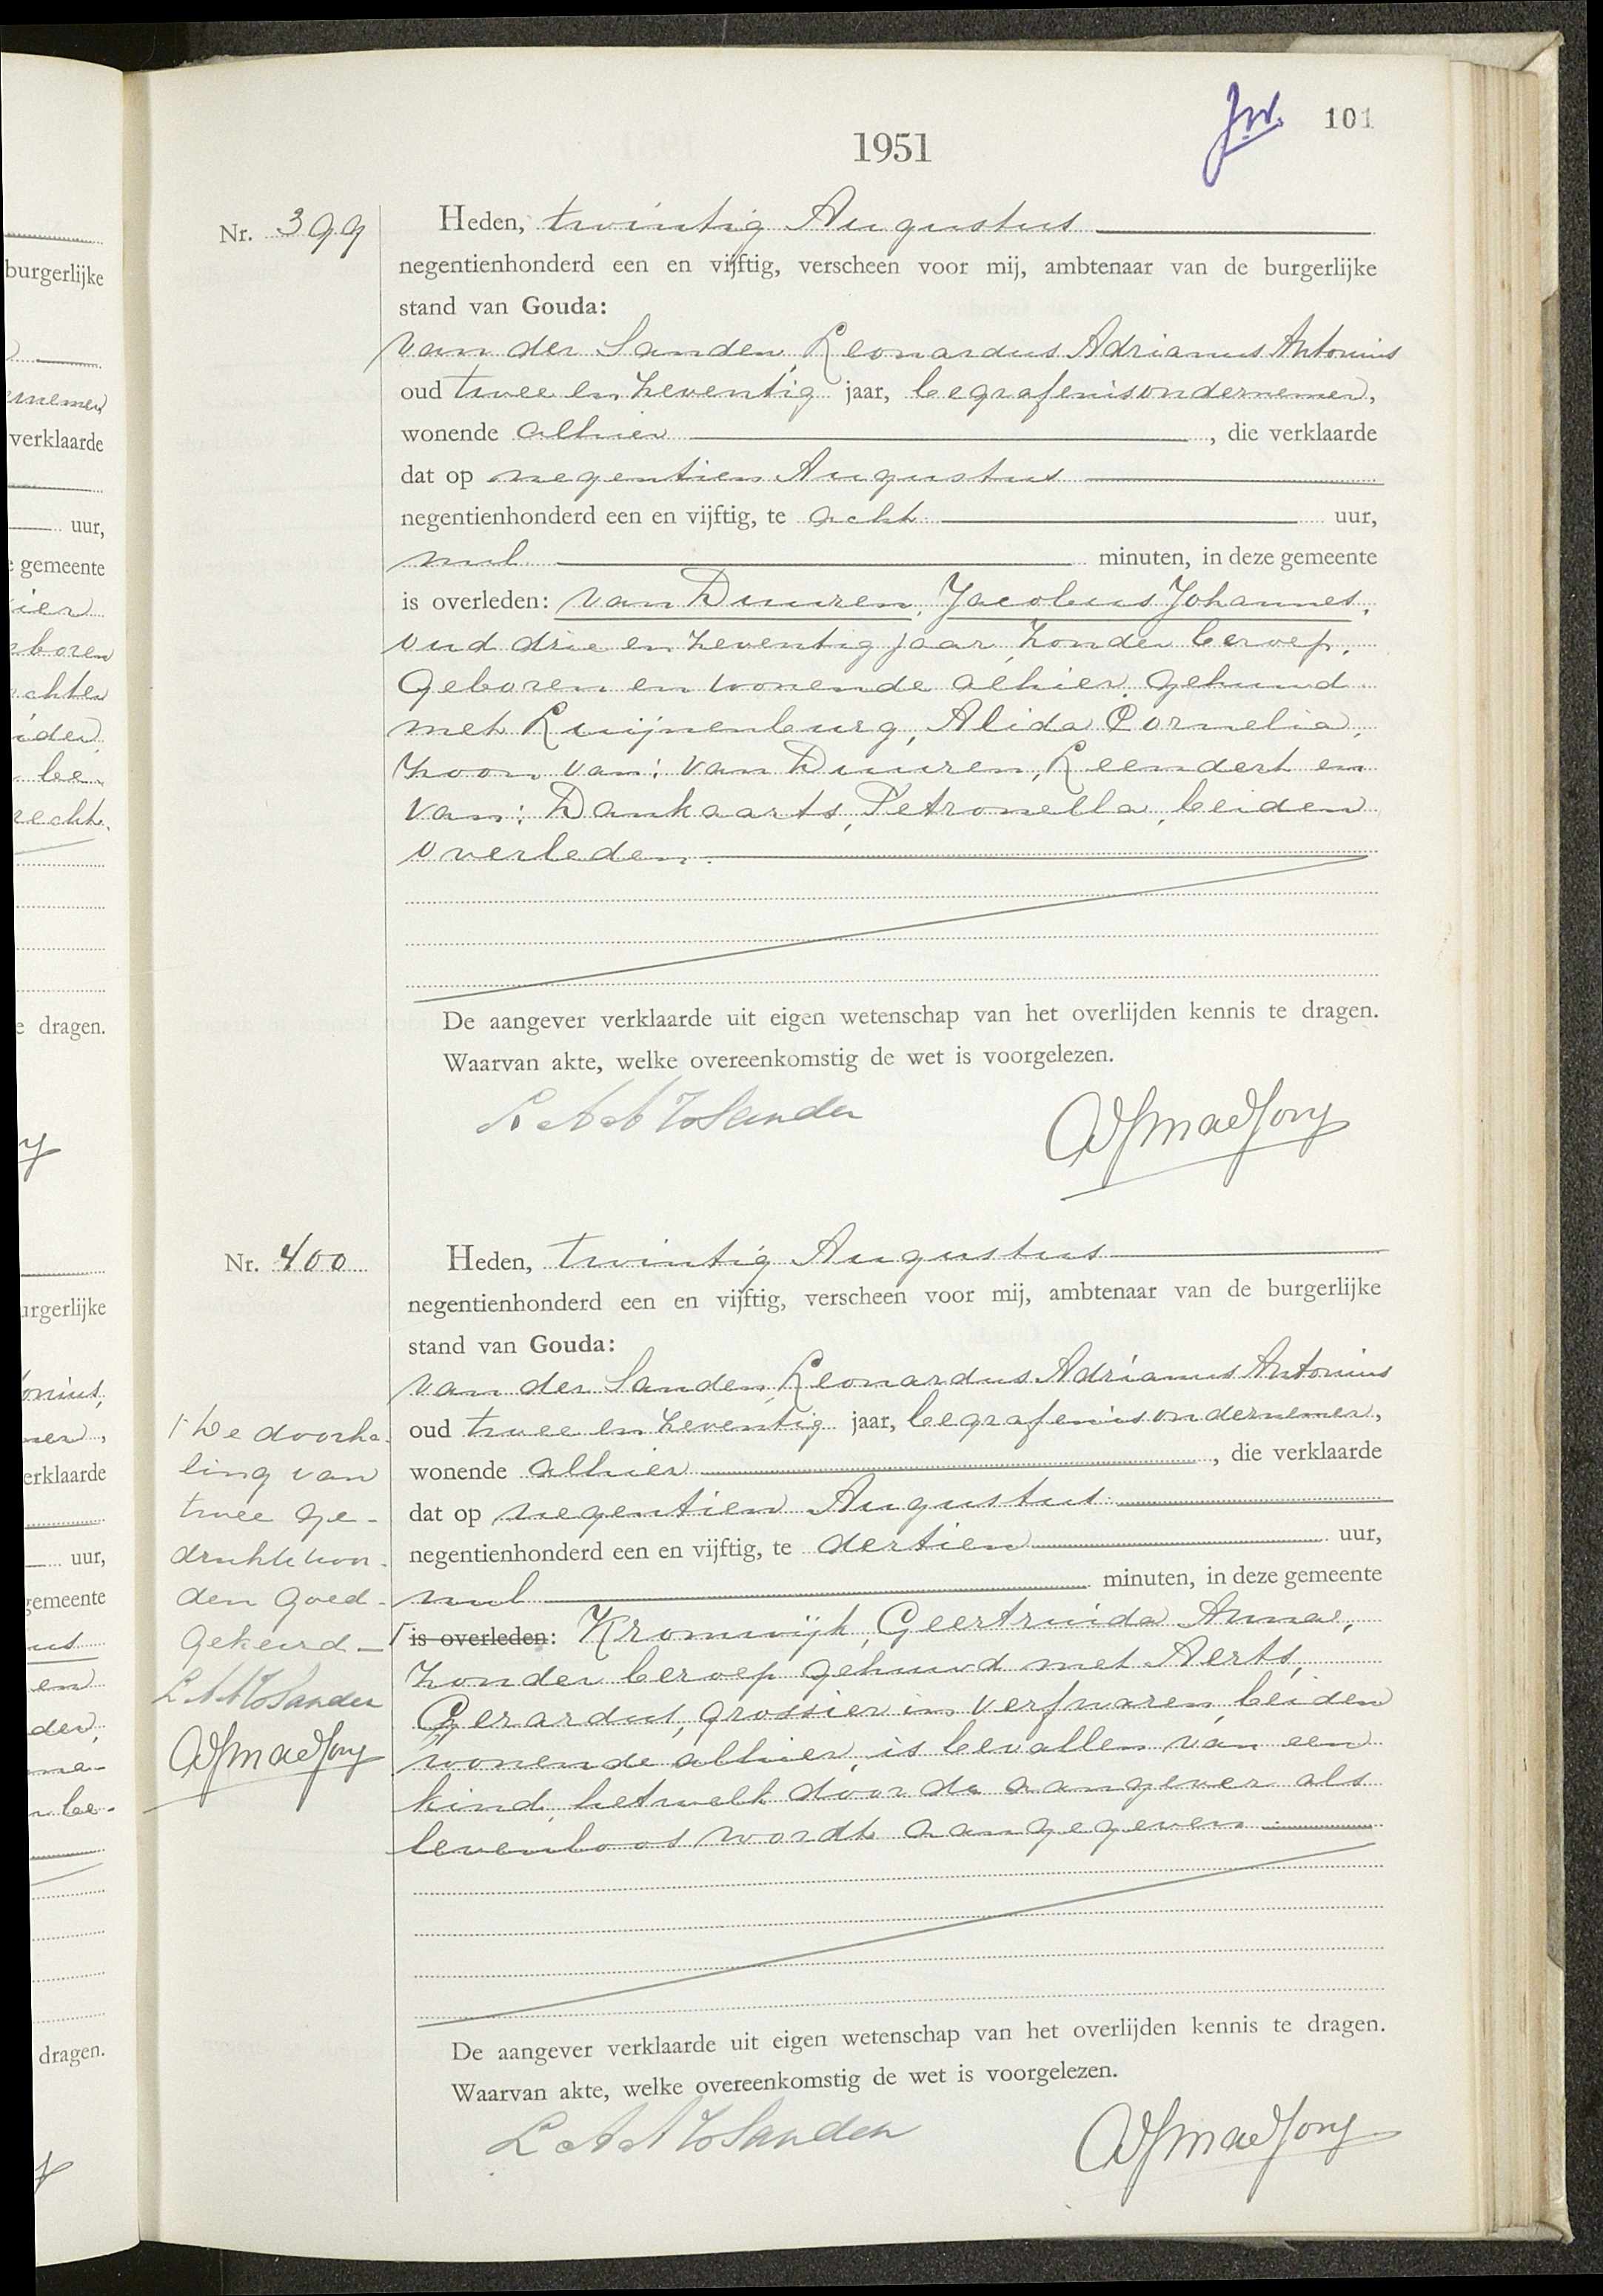 101
1951
Nr. 399
Heden, twintig Augustus
negentienhonderd een en vijftig, verscheen voor mij, ambtenaar van de burgerlijke
stand van Gouda:
van der Sanden, Leonardus Adrianus Antonius
oud twee en zeventig jaar, begrafenisondernemer,
wonende alhier, die verklaarde
dat op negentien Augustus
negentienhonderd een en vijftig, te acht uur,
nul minuten, in deze gemeente
is overleden: van Duuren, Jacobus Johannes,
oud drie en zeventig jaar, zonder beroep,
geboren en wonende alhier, gehuwd
met Luijnenburg, Alida Cornelia,
zoon van: van Duuren, Leendert en
van: Dankaarts, Petronella, beiden
overleden.
De aangever verklaarde uit eigen wetenschap van het overlijden kennis te dragen.
Waarvan akte, welke overeenkomstig de wet is voorgelezen.
L A A vd Sanden
Nr. 400
Heden, twintig Augustus
negentienhonderd een en vijftig, verscheen voor mij, ambtenaar van de burgerlijke
stand van Gouda:
van der Sanden, Leonardus Adrianus Antonius
oud twee en zeventig jaar, begrafenisondernemer,
wonende alhier, die verklaarde
dat op negentien Augustus
negentienhonderd een en vijftig, te dertien uur,
nul minuten, in deze gemeente
is overleden: Kromwijk, Geertruida Anna,
zonder beroep gehuwd met Aerts,
Gerardus, grossier in verfwaren, beiden
wonende alhier, is bevallen van een
kind, hetwelk door de aangever als
levenloos wordt aangegeven
De aangever verklaarde uit eigen wetenschap van het overlijden kennis te dragen.
Waarvan akte, welke overeenkomstig de wet is voorgelezen.
L A A vd Sanden
De doorha-
ling van
twee ge-
drukte woor-
den goed-
gekeurd
L A A vd Sanden
burgerlijke
verklaarde
uur,
gemeente
dragen.
uur,
dragen.